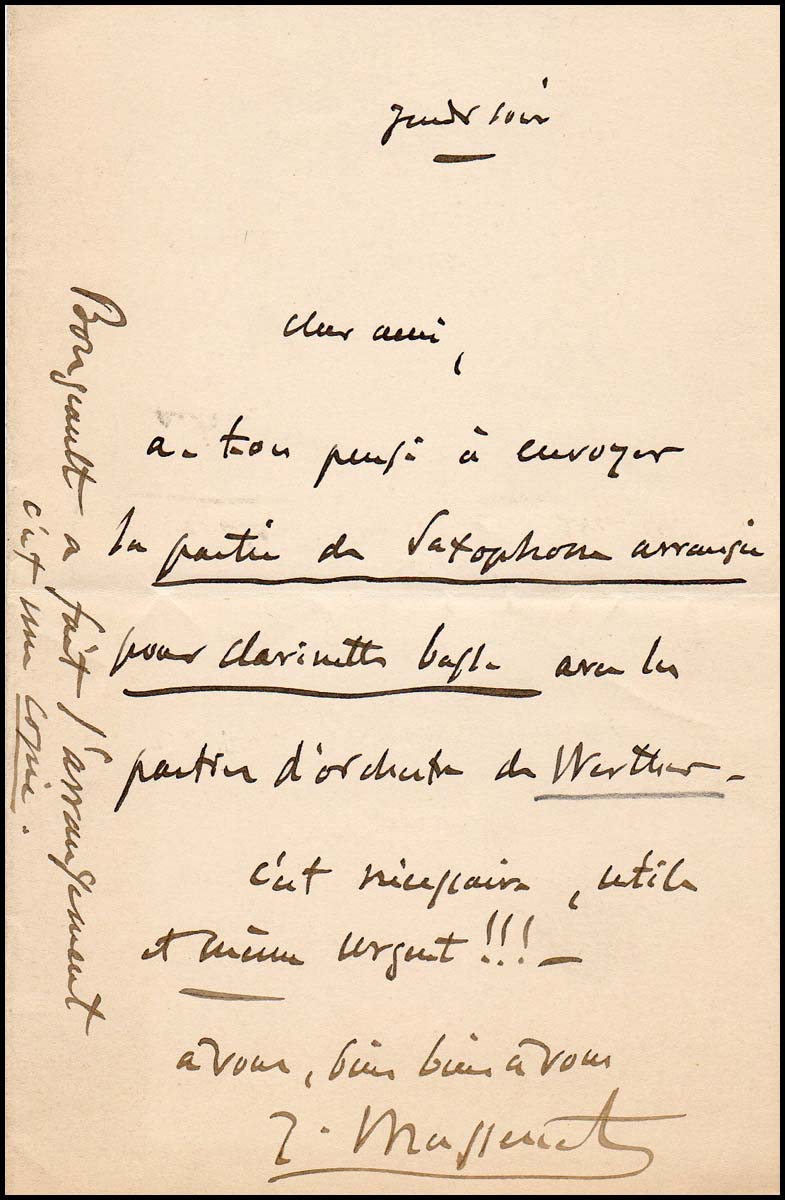 jeudi soir
cher ami,
a-t-on pensé à envoyer
la partie de Saxophone arrangée
pour clarinette basse avec les
parties d'orchestre de Werther -
c'est nécessaire, utile
et même urgent !!! -
à vous, bien bien à vous
J. Massenet
Bourgeault a fait l'arrangement
c'est une copie.